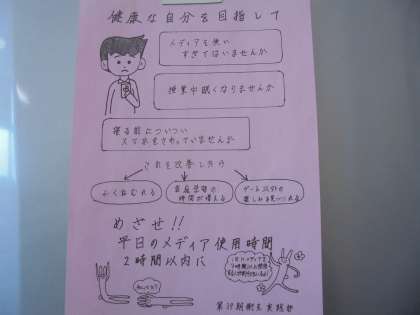 健康な自分を目指して
メディアを使い
すぎてはいませんか
授業中眠くなりませんか
寝る前についつい
スマホをさわっていませんか
これを改善したら
よくねむれる
家庭学習の
時間が増える
ゲーム以外の
楽しみを見つけられる
めざせ!!
平日のメディア使用時間
2時間以内に